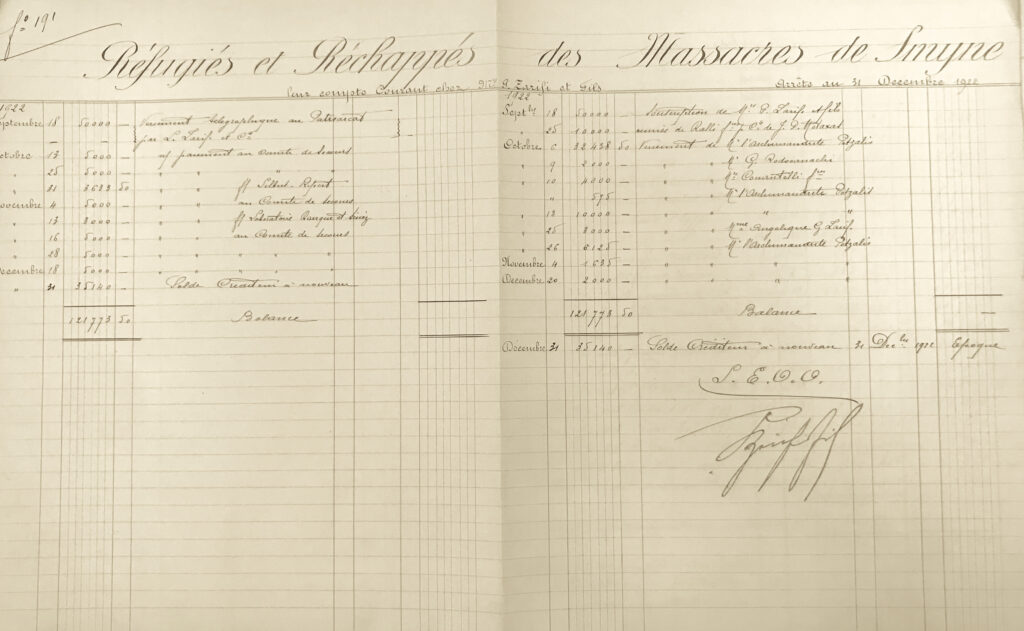 fº 191
Réfugiés et Réchappés des Massacres de Smyne
leur compte Courant chez Mrs G. Zarifi et Fils Arrêts au 31 Decembre 1922
1922
Septembre 18 50000 — Versement télégraphique au Patriarcat
par L. Zarifi et Cie
Octobre 13 5000 — n/ paiement au Comite de secours
" 25 5000 — " " "
" 31 3633 50 " "
Novembre 4 5000 — " " au Comite de secours
" 13 3000 — " "
" 16 5000 — " " au Comite de secours
" 28 5000 — " " "
Decembre 18 5000 — " " "
" 31 35140 — Solde Créditeur à nouveau
121773 50 Balance
1922
Septbre 18 50000 — Souscription de Mrs G. Zarifi & fils
" 25 10000 — remise de Ralli
Octobre 6 32438 50 Versement de Mr l'Archimandrite Petzalis
" 9 2000 — " " Mr G. Rodocanachi
" 10 4000 — " "
" " 575 — " " Mr l'Archimandrite Petzalis
" 12 10000 — " " "
" 25 3000 — " " Mme Angelique G. Zarifi
" 26 6125 — " " Mr l'Archimandrite Petzalis
Novembre 4 1635 — " " "
Decembre 20 2000 — " " "
121773 50 Balance —
Decembre 31 35140 — Solde Créditeur à nouveau 31 Decbre 1922 Epoque
S. E. O. O.